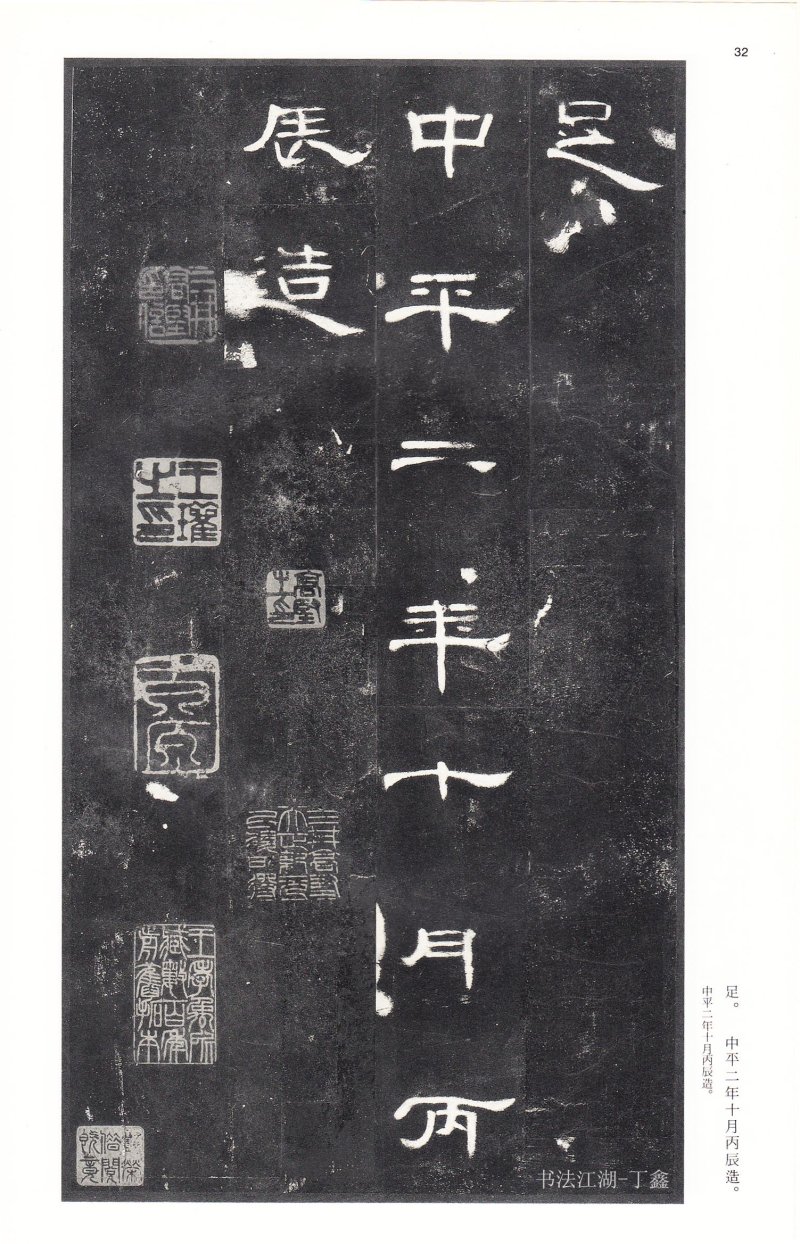 32
足
中平二年十月丙
辰造
王瓘之印
足。 中平二年十月丙辰造。
中平二年十月丙辰造。
书法江湖-丁鑫